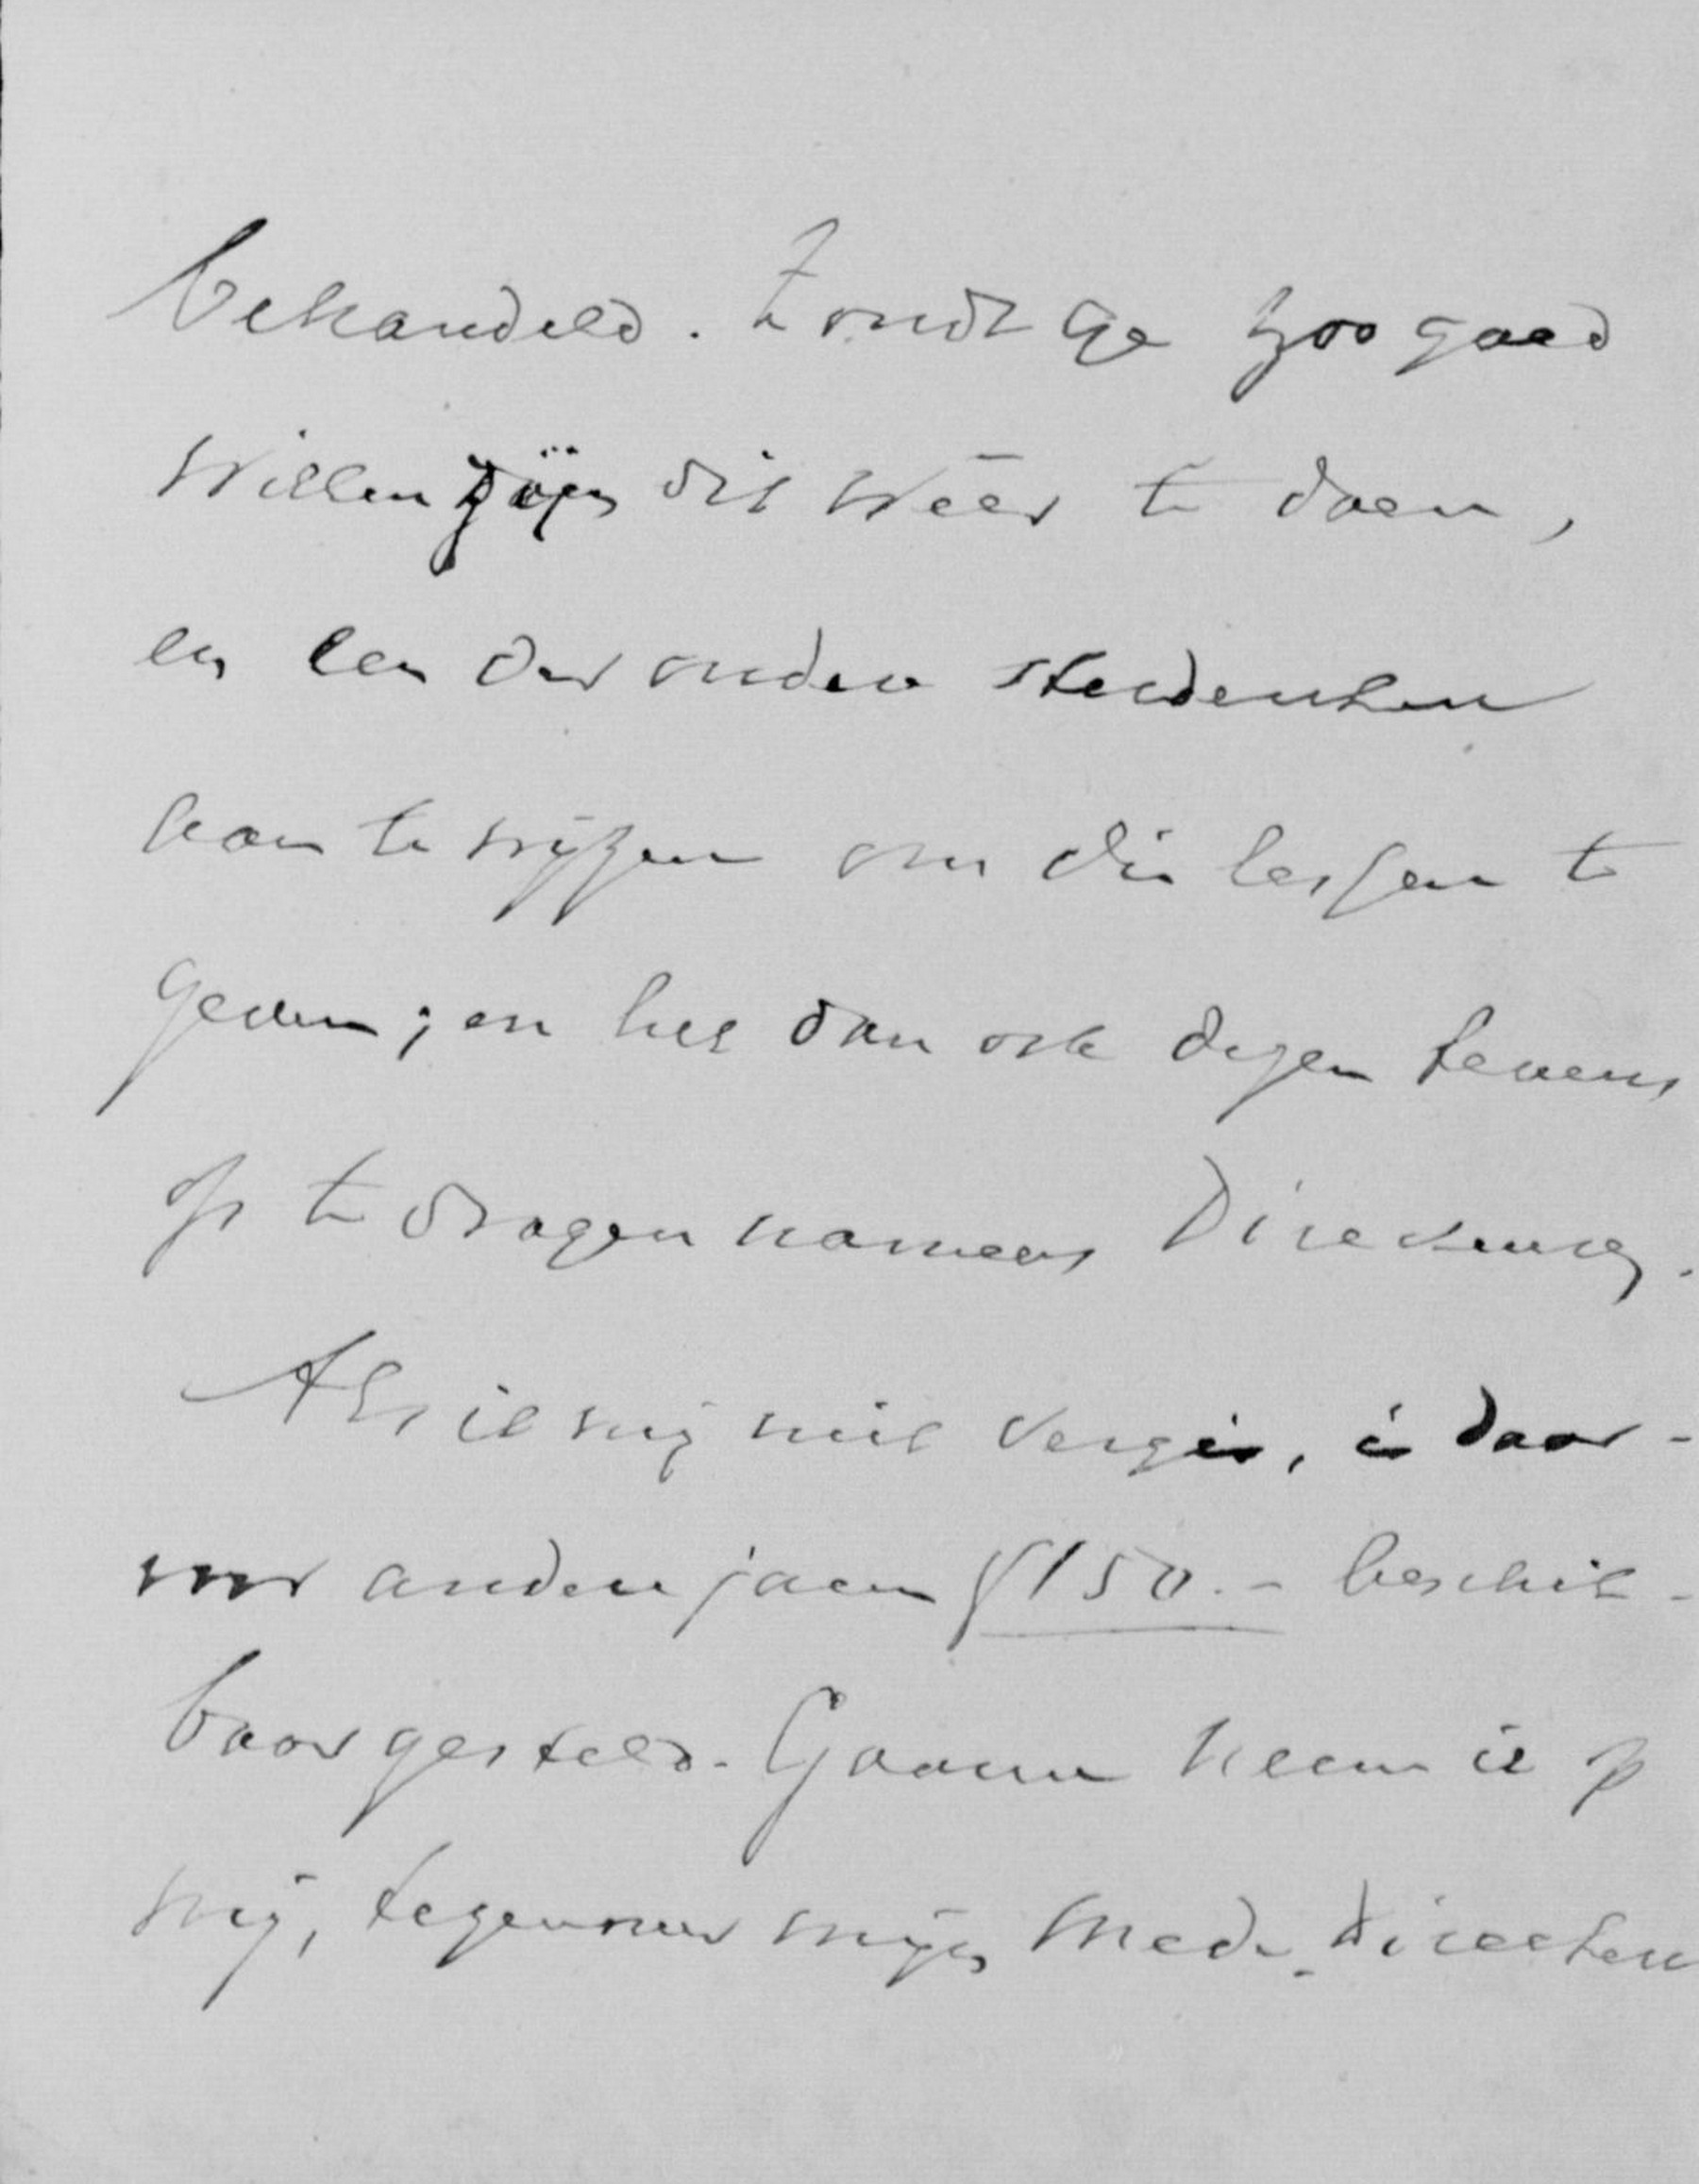 behandeld. Zoudt Ge zoo goed
willen zijn dit wéér te doen,
en een der oudere studenten
aan te wijzen om die lessen te
geven; en het dan ook dezen tevens
op te dragen namens Directeuren.
Als ik mij niet vergis, is daar-
voor andere jaren f150.- beschik-
baar gesteld. Gaarne neem ik op
mij, tegenover mijn Mede-directeuren